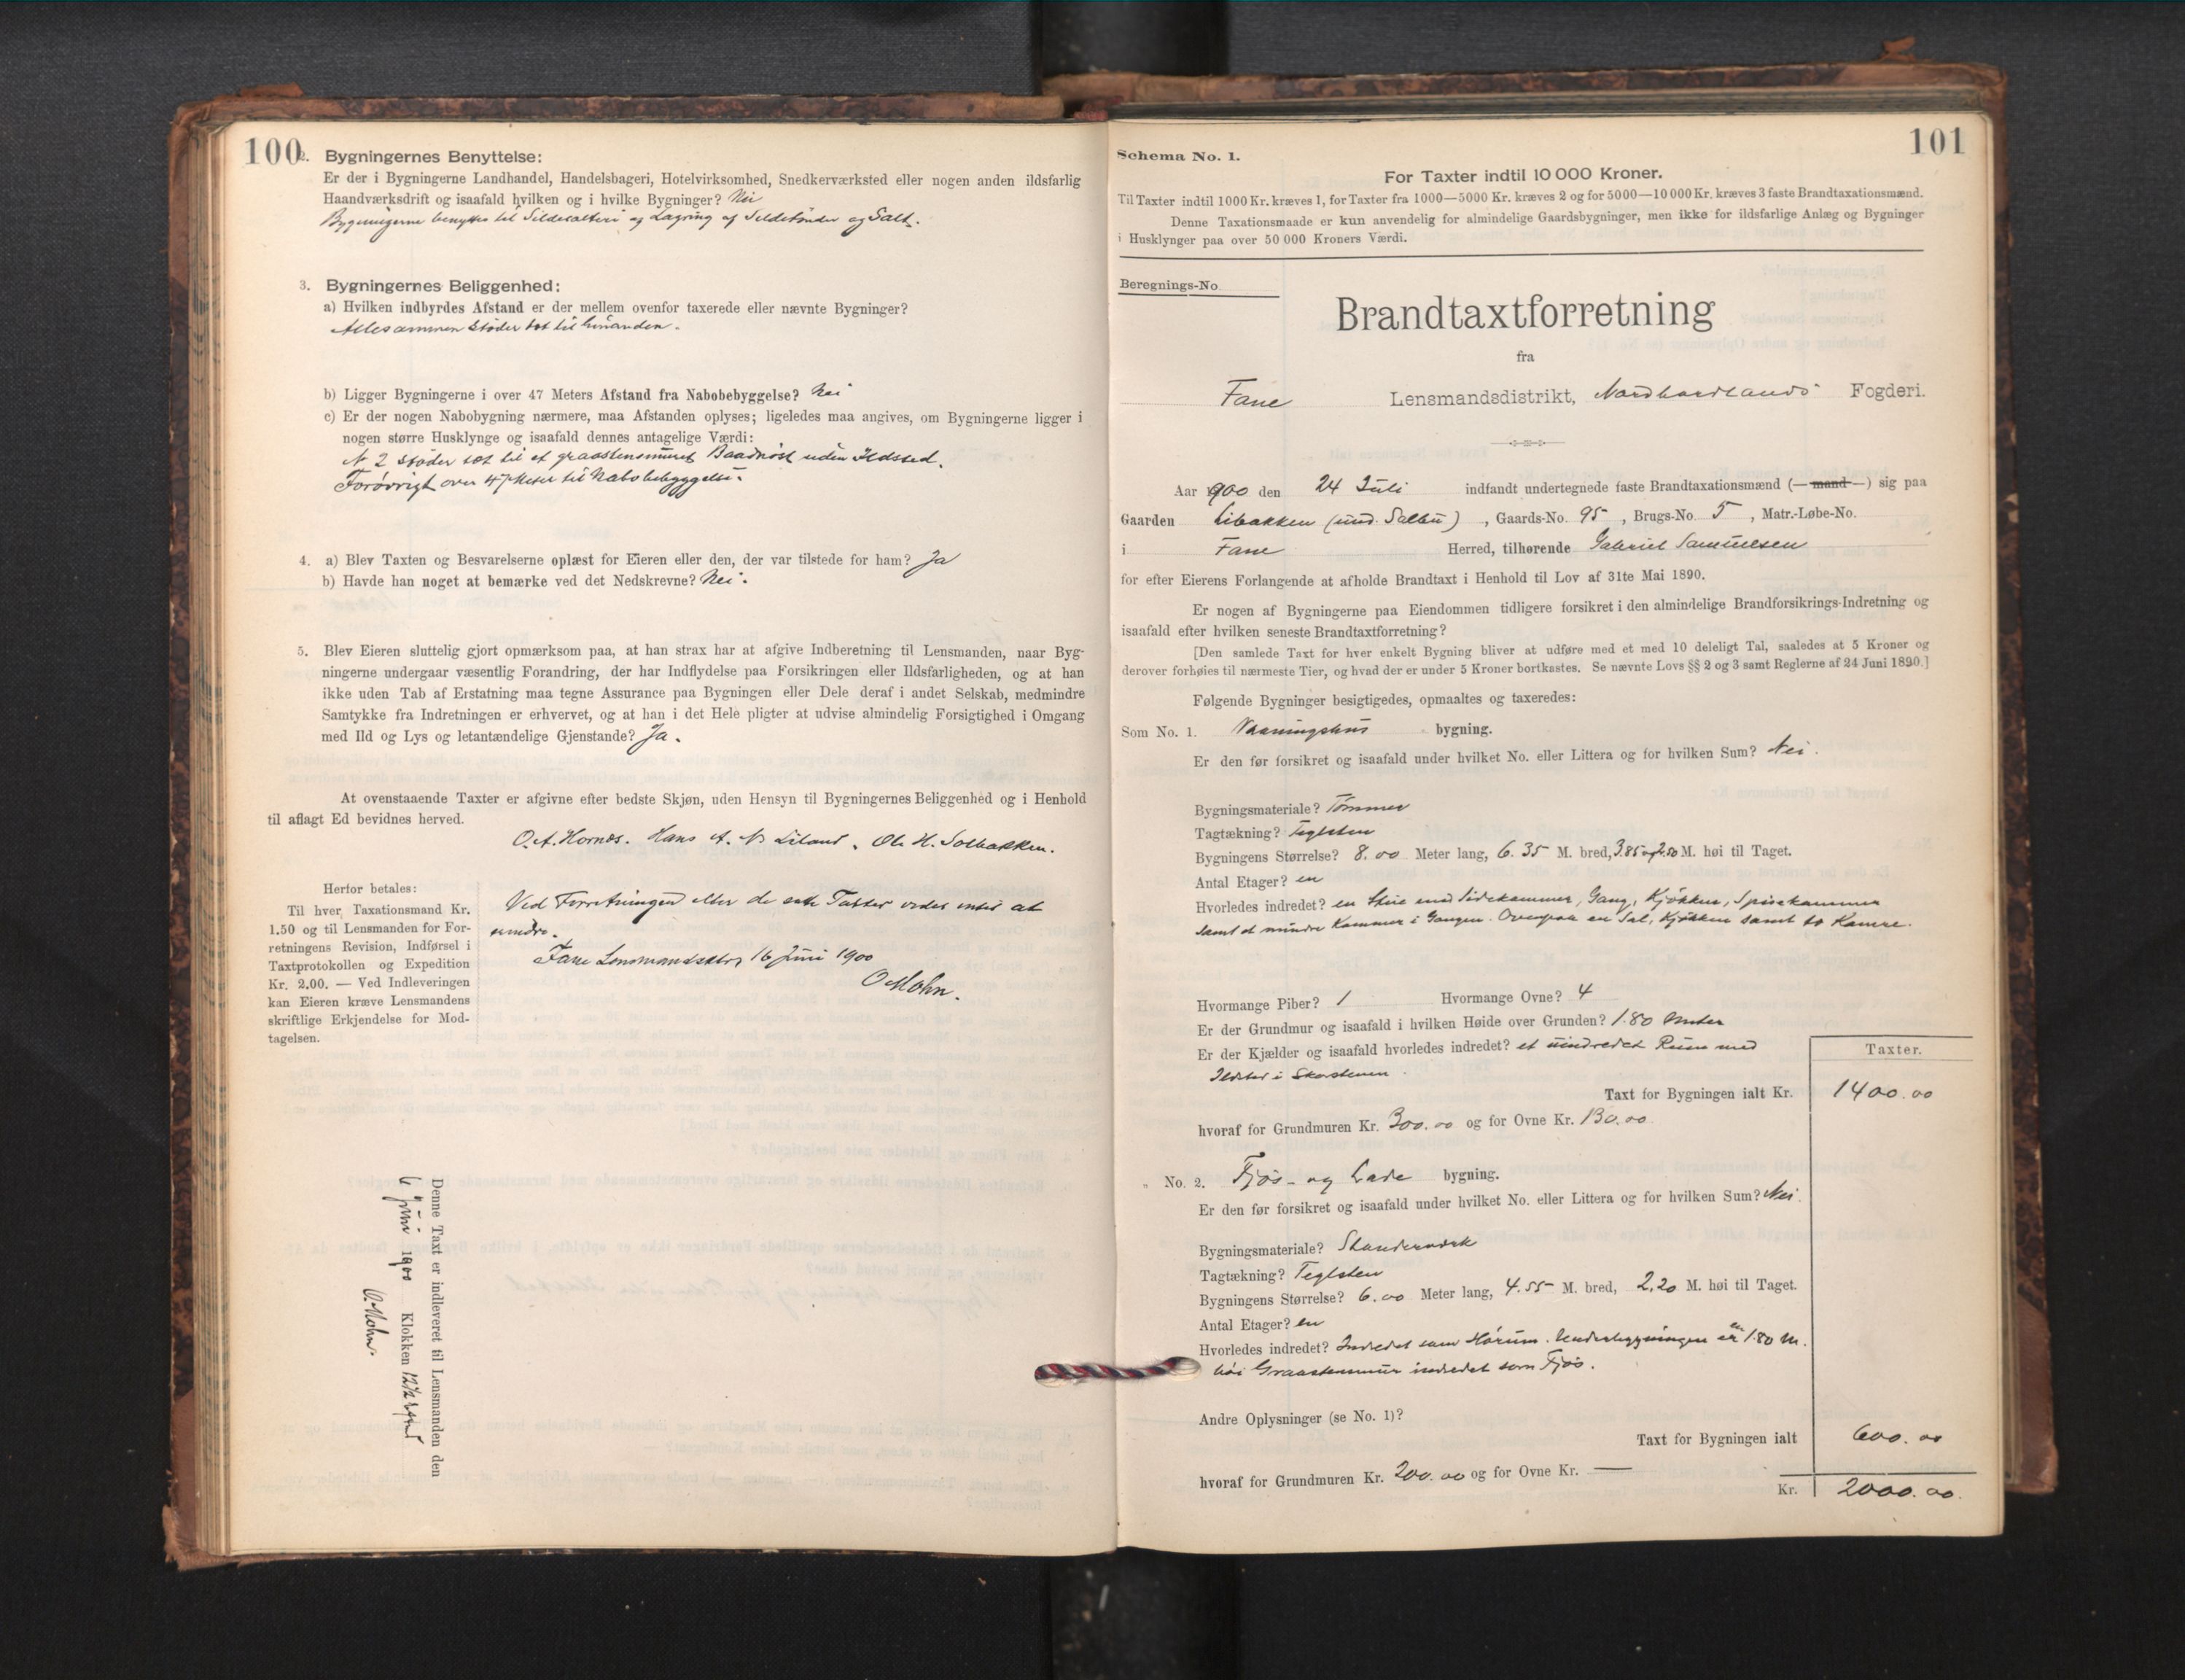 100
2. Bygningernes Benyttelse:
Er der i Bygningerne Landhandel, Handelsbageri, Hotelvirksomhed, Snedkerværksted eller nogen anden ildsfarlig
Haandværksdrift og isaafald hvilken og i hvilke Bygninger? Nei
Bygningerne benyttes til Sildesalteri og Lagring af Sildetønder og Salt.
3. Bygningernes Beliggenhed:
a) Hvilken indbyrdes Afstand er der mellem ovenfor taxerede eller nævnte Bygninger?
Allesammen støder tæt til hinanden.
b) Ligger Bygningerne i over 47 Meters Afstand fra Nabobebyggelse? Nei
c) Er der nogen Nabobygning nærmere, maa Afstanden oplyses; ligeledes maa angives, om Bygningerne ligger i
nogen større Husklynge og isaafald dennes antagelige Værdi:
N 2 støder tæt til et graastensmuret Baadnøst uden Ildsted.
Forøvrigt over 47 Meter til Nabobebyggelse.
4. a) Blev Taxten og Besvarelserne oplæst for Eieren eller den, der var tilstede for ham? Ja
b) Havde han noget at bemærke ved det Nedskrevne? Nei.
5. Blev Eieren sluttelig gjort opmærksom paa, at han strax har at afgive Indberetning til Lensmanden, naar Byg-
ningerne undergaar væsentlig Forandring, der har Indflydelse paa Forsikringen eller Ildsfarligheden, og at han
ikke uden Tab af Erstatning maa tegne Assurance paa Bygningen eller Dele deraf i andet Selskab, medmindre
Samtykke fra Indretningen er erhvervet, og at han i det Hele pligter at udvise almindelig Forsigtighed i Omgang
med Ild og Lys og letantændelige Gjenstande? Ja.
At ovenstaaende Taxter er afgivne efter bedste Skjøn, uden Hensyn til Bygningernes Beliggenhed og i Henhold
til aflagt Ed bevidnes herved.
O. A. Hornes. Hans A. N Liland. Ole H. Solbakken.
Herfor betales:
Til hver Taxationsmand Kr.
1.50 og til Lensmanden for For-
retningens Revision, Indførsel i
Taxtprotokollen og Expedition
Kr. 2.00. — Ved Indleveringen
kan Eieren kræve Lensmandens
skriftlige Erkjendelse for Mod-
tagelsen.
Ved Forretningen eller de satte Taxter vides intet at
erindre.
Fane Lensmandsktr, 16 Juni 1900
O Mohn.
Denne Taxt er indleveret til Lensmanden den
6 Juni 1900 Klokken 12½
O. Mohn.
101
Schema No. 1.
For Taxter indtil 10 000 Kroner.
Til Taxter indtil 1000 Kr. kræves 1, for Taxter fra 1000—5000 Kr. kræves 2 og for 5000—10 000 Kr. kræves 3 faste Brandtaxationsmænd.
Denne Taxationsmaade er kun anvendelig for almindelige Gaardsbygninger, men ikke for ildsfarlige Anlæg og Bygninger
i Husklynger paa over 50 000 Kroners Værdi.
Beregnings-No.
Brandtaxtforretning
fra
Fane Lensmandsdistrikt, Nordhordlands Fogderi.
Aar 1900 den 24 Juli indfandt undertegnede faste Brandtaxationsmænd (—mand—) sig paa
Gaarden Libakken (und. Salbu), Gaards-No. 95, Brugs-No. 5, Matr.-Løbe-No.
i Fane Herred, tilhørende Gabriel Samuelsen
for efter Eierens Forlangende at afholde Brandtaxt i Henhold til Lov af 31te Mai 1890.
Er nogen af Bygningerne paa Eiendommen tidligere forsikret i den almindelige Brandforsikrings-Indretning og
isaafald efter hvilken seneste Brandtaxtforretning?
[Den samlede Taxt for hver enkelt Bygning bliver at udføre med et med 10 deleligt Tal, saaledes at 5 Kroner og
derover forhøies til nærmeste Tier, og hvad der er under 5 Kroner bortkastes. Se nævnte Lovs §§ 2 og 3 samt Reglerne af 24 Juni 1890.]
Følgende Bygninger besigtigedes, opmaaltes og taxeredes:
Som No. 1. Vaaningshus bygning.
Er den før forsikret og isaafald under hvilket No. eller Littera og for hvilken Sum? Nei.
Bygningsmateriale? Tømmer
Tagtækning? Teglsten
Bygningens Størrelse? 8.00 Meter lang, 6.35 M. bred, 3.85 og 2.50 M. høi til Taget.
Antal Etager? en
Hvorledes indredet? en Stue med Sidekammer, Gang, Kjøkken, Spisekammer
samt et mindre Kammer i Gangen. Ovenpaa en Sal, Kjøkken samt to Kamre.
Hvormange Piber? 1 Hvormange Ovne? 4
Er der Grundmur og isaafald i hvilken Høide over Grunden? 1.80 Meter
Er der Kjælder og isaafald hvorledes indredet? et uindredet Rum med
Ildsted i Skorstenen.
Taxter.
Taxt for Bygningen ialt Kr. 1400.00
hvoraf for Grundmuren Kr. 300.00 og for Ovne Kr. 130.00
" No. 2. Fjøs- og Lade bygning.
Er den før forsikret og isaafald under hvilket No. eller Littera og for hvilken Sum? Nei.
Bygningsmateriale? Standerværk
Tagtækning? Teglsten
Bygningens Størrelse? 6.00 Meter lang, 4.55 M. bred, 2.20 M. høi til Taget.
Antal Etager? en
Hvorledes indredet? Indredet som Hørum. Underbygningen er en 1.80 M.
høi Graastensmur indredet som Fjøs.
Andre Oplysninger (se No. 1)?
Taxt for Bygningen ialt 600.00
hvoraf for Grundmuren Kr. 200.00 og for Ovne Kr. —
Kr. 2000.00.